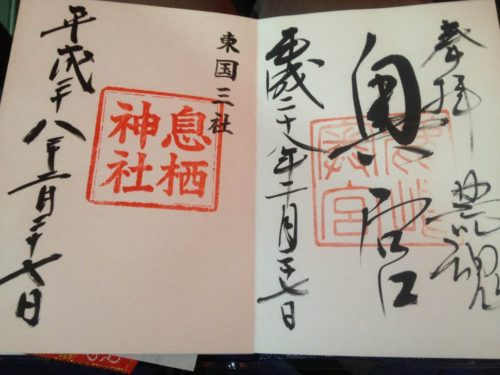 奉拝 荒魂
奥宮
平成二十八年二月二十七日
東国三社
息栖
神社
平成二十八年二月二十七日